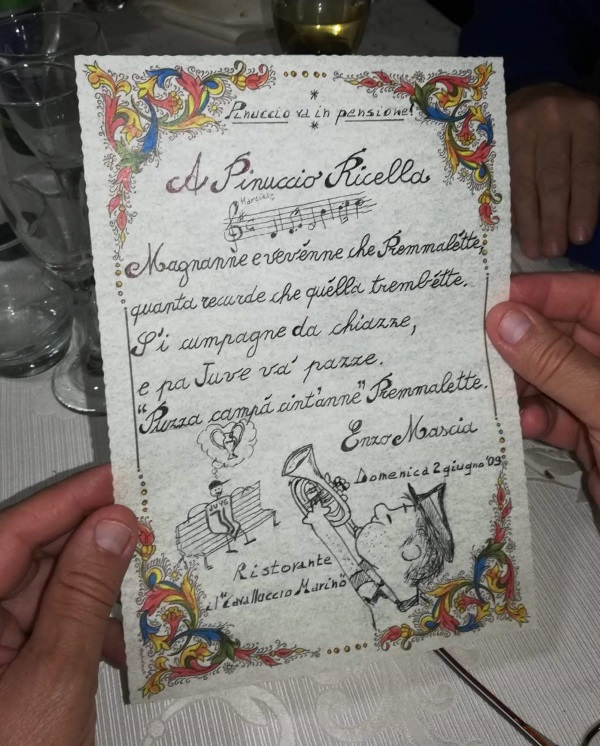 Pinuccio va in pensione!
A Pinuccio Ricella
Magnanne e vevénne che Premmalétte,
quanta recurde che quélla trembétte.
S'i cumpagne da chiazze,
e pa Juve va' pazze.
"Puzza campá cint'anne" Premmalette.
Enzo Mascia
Domenica 2 giugno '09
JUVE
Ristorante
il "Cavalluccio Marino"